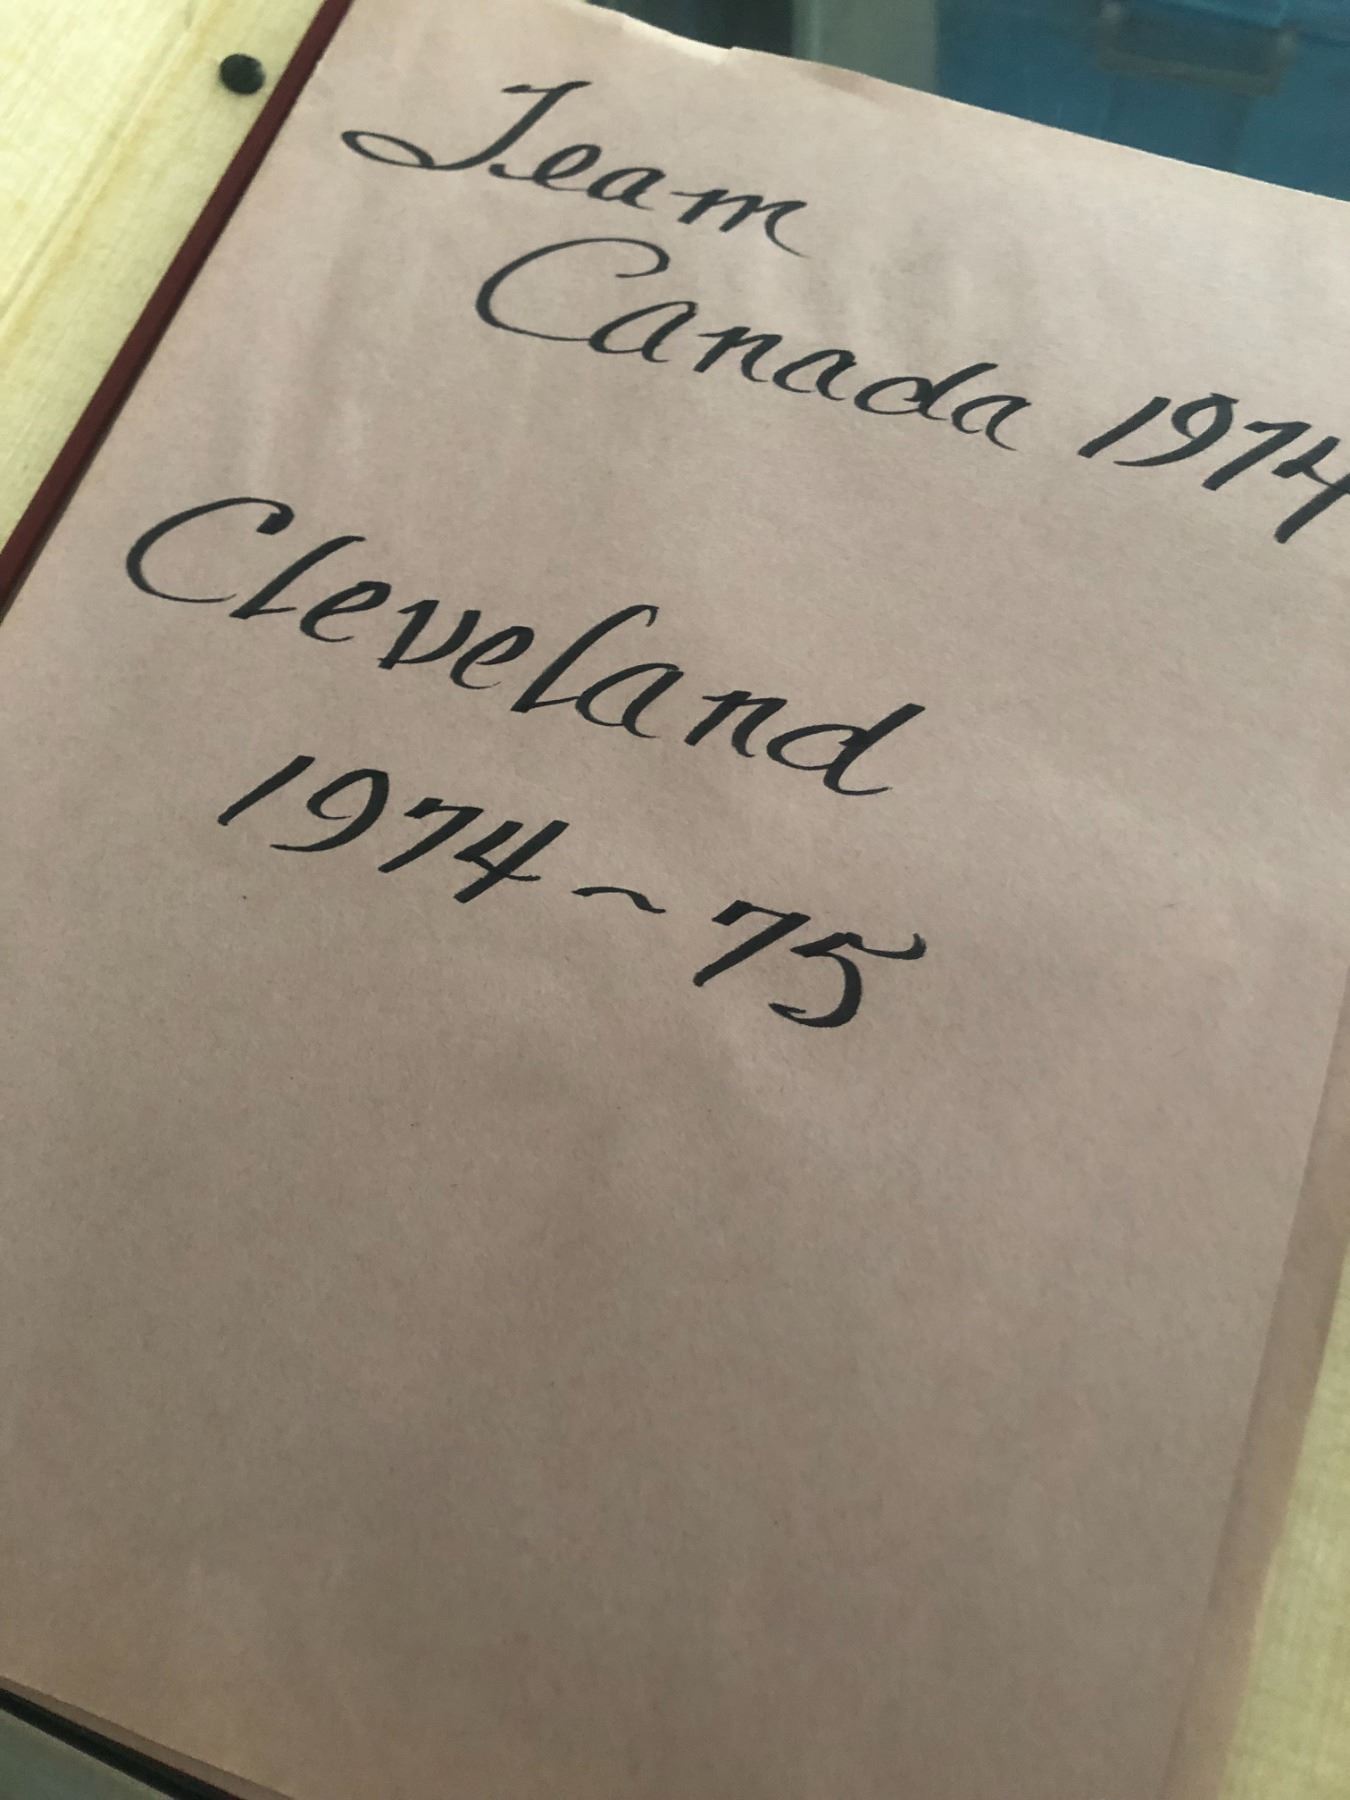 Team
Canada 1974
Cleveland
1974~75